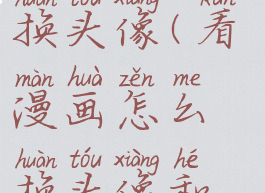 huàn tóu xiàng kàn
换头像(看
màn huà zěn me
漫画怎么
huàn tóu xiàng hé
换头像和